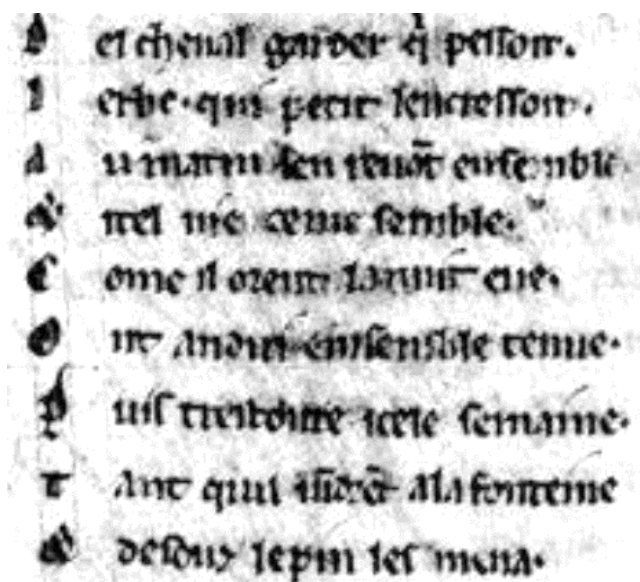 D el cheual garder q̃ pessoit.
L erbe. qui petit lencressoit.
A u matin sen reuōt ensemble
A utel uie ce me semble.
C ome il orent la nuit eue.
O nt andui ensemble tenue.
P uis trestoute icele semaine.
T ant quil uīdrēt a la fonteine
desouz le pin les mena.